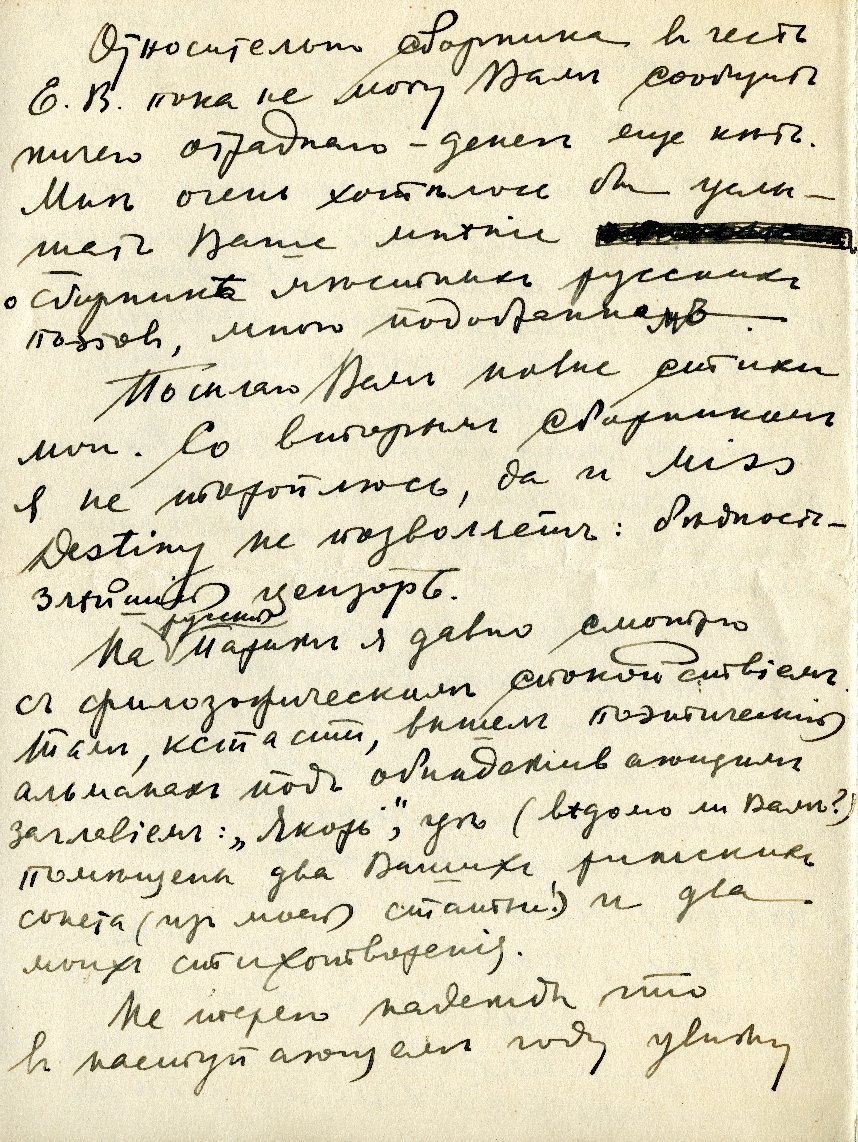 Относительно сборника в честь
Е. В. пока не могу Вамъ сообщить
ничего отраднаго – денегъ еще нѣтъ.
Мнѣ очень хотѣлось бы услы–
шать Ваше мнѣніе
о сборникѣ мюнстнихъ русскихъ
поэтовъ, мною подобранномъ.
Посылаю Вамъ новые стихи
мои. Со вторымъ сборникомъ
я не тороплюсь, да и Miss
Destiny не позволяетъ: бѣдность –
злѣйшій цензоръ.
На русскій Парижъ я давно смотрю
съ философическимъ спокойствіемъ.
Тамъ, кстати, вышелъ поэтическій
альманахъ подъ обнадеживающимъ
заглавіемъ: „Якорь", гдѣ (вѣдомо ли Вамъ?)
помѣщены два Вашихъ рижскихъ
сонета (изъ моей статьи!) и два
моихъ стихотворенія.
Не теряю надежды что
въ наступающемъ году увижу